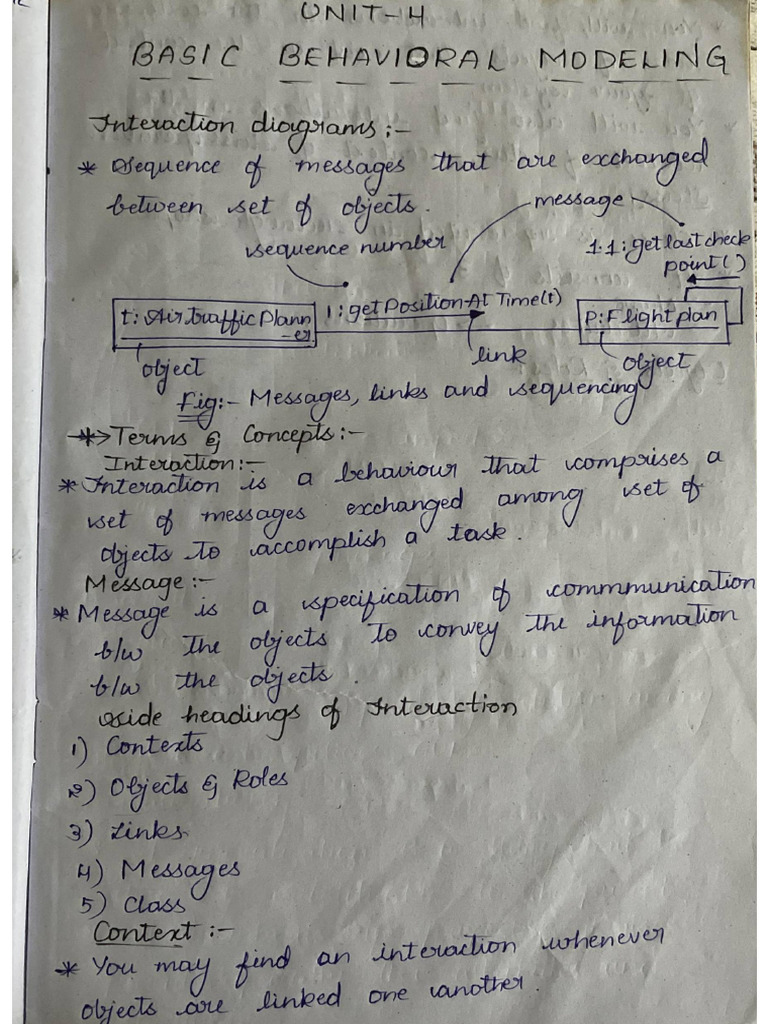 UNIT-4
BASIC BEHAVIORAL MODELING
Interaction diagrams:-
* Sequence of messages that are exchanged
between set of objects.
message
sequence number
1.1: get last check
point( )
t: Air traffic Plann
-er
1: get Position At Time(t)
P: Flight plan
object
link
object
Fig:- Messages, links and sequencing
*> Terms & Concepts:-
Interaction:-
* Interaction is a behaviour that comprises a
set of messages exchanged among set of
objects to accomplish a task.
Message:-
* Message is a specification of commmunication
b/w the objects to convey the information
b/w the objects.
side headings of Interaction
1) Contexts
2) Objects & Roles
3) Links
4) Messages
5) Class
Context:-
* You may find an interaction whenever
objects are linked one another.